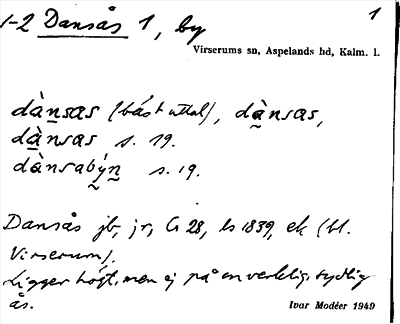 1-2 Dansås 1, by 1
Virserums sn, Aspelands hd, Kalm. l.
dànsas (bäst uttal), dànsas,
dànsas s. 19.
dànsabýn s. 19.
Dansås jb, jr, G 28, ls 1839, ek (bl.
Virserum).
Ligger högt, men ej på en verklig, tydlig
ås.
Ivar Modéer 1949